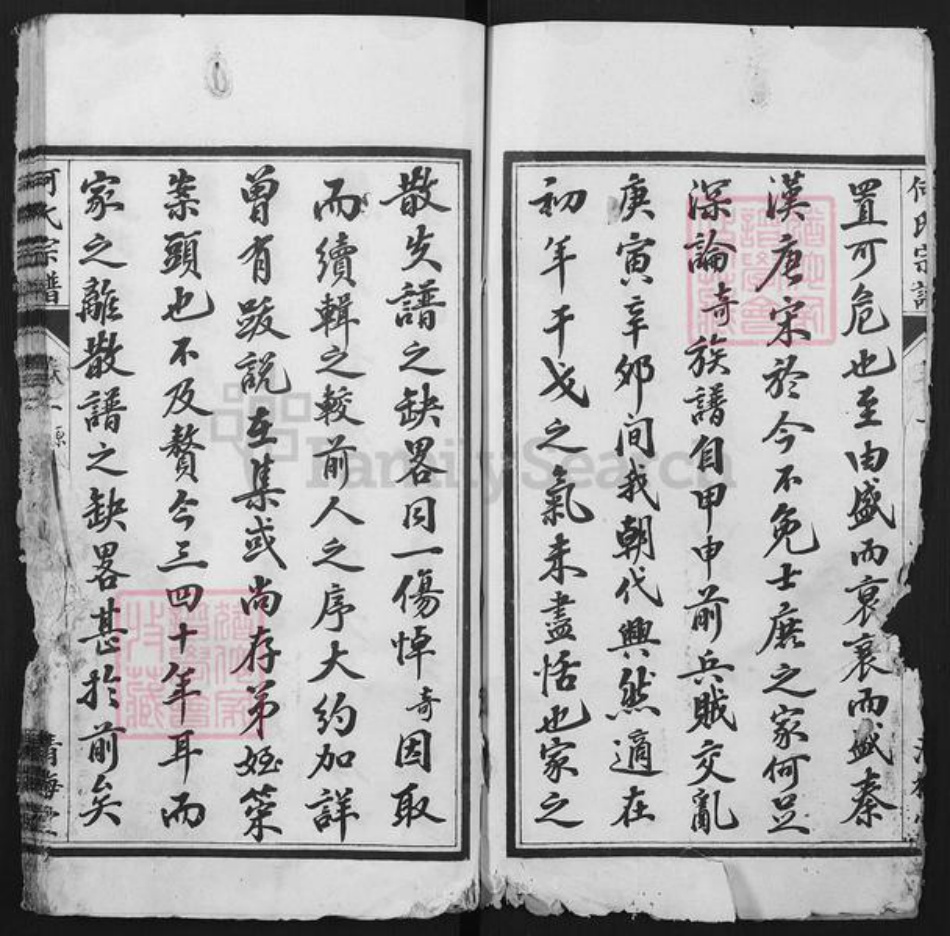 置可危也至由盛而衰衰而盛秦
漢唐宋於今不免士庶之家何足
深論奇族譜自甲申前兵賊交亂
庚寅辛夘间我朝代興然適在
初年干戈之氣未盡恬也家之
散失譜之缺畧同一傷悼奇因取
而續輯之較前人之序大約加詳
曾有跋説在集或尚存弟姪等
案頭也不及贅今三四十年耳而
家之離散譜之缺畧甚扵前矣
何氏宗譜
何氏宗譜
青海堂
FamilySearch